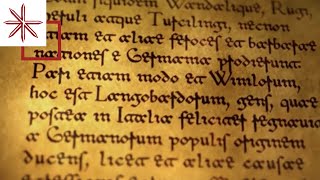 siquidem Wandalique, Rugi,
eruli atque Turcilingi, necnon
etiam et aliae feroces et barbarae
nationes e Germania prodierunt.
Pari etiam modo et Winilorum,
hoc est Langobardorum, gens, quae
postea in Italia feliciter
a Germanorum populis originem
ducens, licet et aliae causae